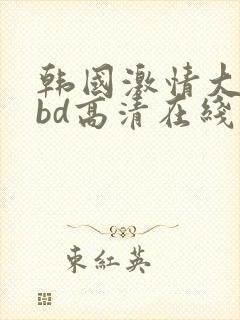 韩國激情大
bd高清在綫
東紅英